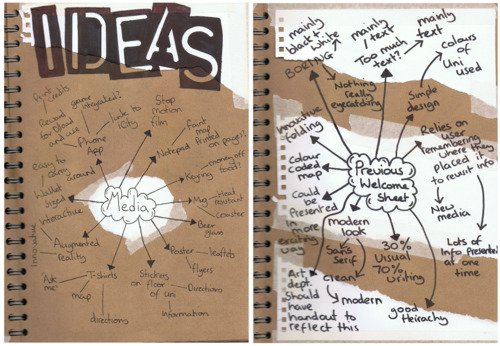 IDEAS
Print
credits
game
integrated?
Reward
for
and use
link to
iCity
Phone
App
Stop
motion
film
Notepad
Faint
map
Printed
on pages?
easy to
carry
around
Wallet
sized
interactive
Innovative
Augmented
reality
Media
money off
food?
Keyring
Mug
Heat
resistant
coaster
Beer
glass
Poster
leaflets
flyers
T-Shirts
'Ask
me'
map
directions
Stickers
on floor
of uni
Directions
Information
mainly
black +
white
BORING
Nothing
really
eyecatching
mainly
text
Too much
text?
mainly
text
colours
of
Uni used
Simple
design
innovative
folding
colour
coded
map
Could
be
Presented
in more
interesting
way
Previous
Welcome
Sheet
Relies on user
remembering
where they
placed it
to revisit info
New
media
Lots of
Info Presented
at one
time
modern
look
Sans
Serif
clean
modern
30%
Visual
70%
Writing
good
Heirachy
Art
dept.
Should
have
handout to
reflect this